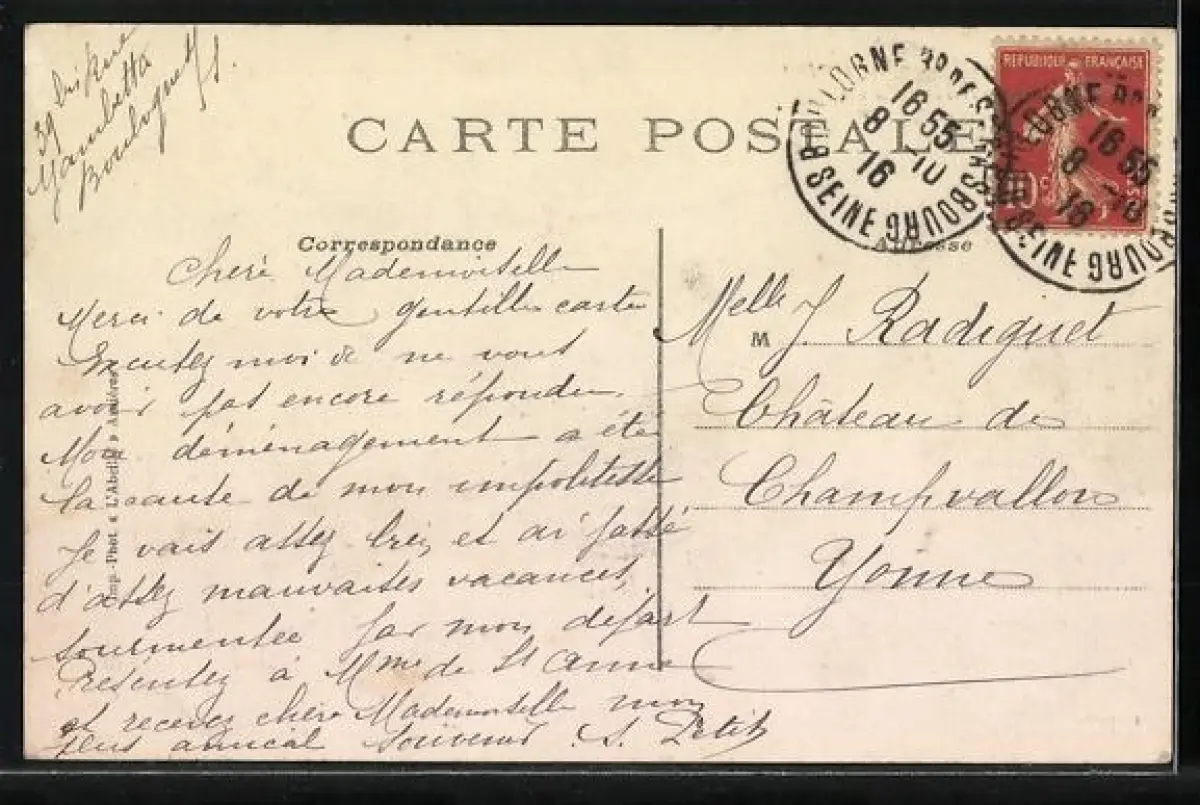 39
Gambetta
Boulogne s/s.
CARTE POSTALE
BD DE STRASBOURG
SEINE
16 55
8 -10
16
REPUBLIQUE FRANÇAISE
10 c
16 55
8 -10
16
SEINE
Correspondance
Adresse
Chère Mademoiselle
Merci de votre gentille carte
Excusez moi de ne vous
avoir pas encore répondu.
Mon déménagement a été
la cause de mon impolitesse
Je vais assez bien et ai passé
d'assez mauvaises vacances,
tourmentée par mon départ
Présentez à Mme de St Anne
et recevez chère Mademoiselle mon
plus amical souvenir. S. Petit
Imp.-Phot. « L'Abeille » Asnières
Melle J. Radiguet
M
Château de
Champvallon
Yonne